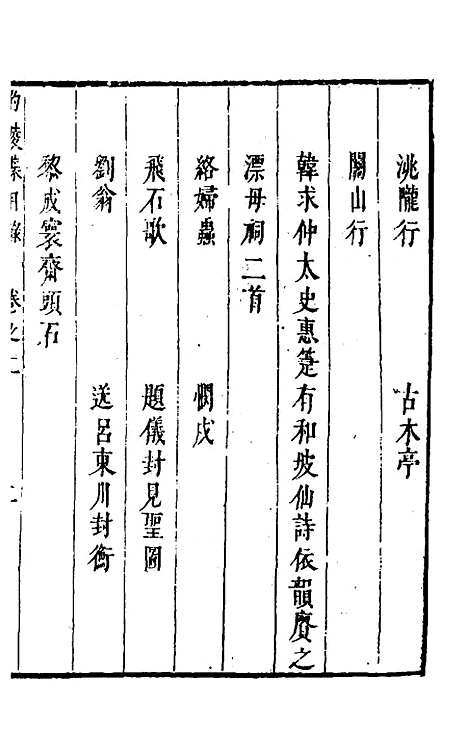 洮隴行　古木亭
關山行
韓求仲太史惠箑有和坡仙詩依韻賡之
漂母祠二首
絡婦蟲　憫戌
飛石歌　題儀封見聖圖
劉翁　送呂東川封衡
黎成寰齋頭石
目錄　卷之二